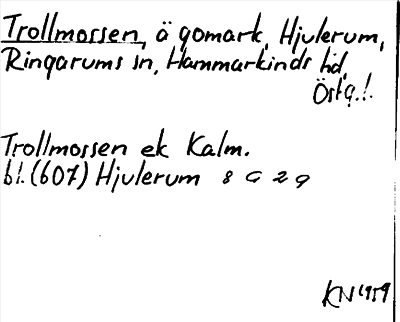 Trollmossen, ägomark, Hjulerum,
Ringarums sn, Hammarkinds hd,
Östg.l.
Trollmossen ek Kalm.
bl. (607) Hjulerum 8 G 2 g
KN 1959